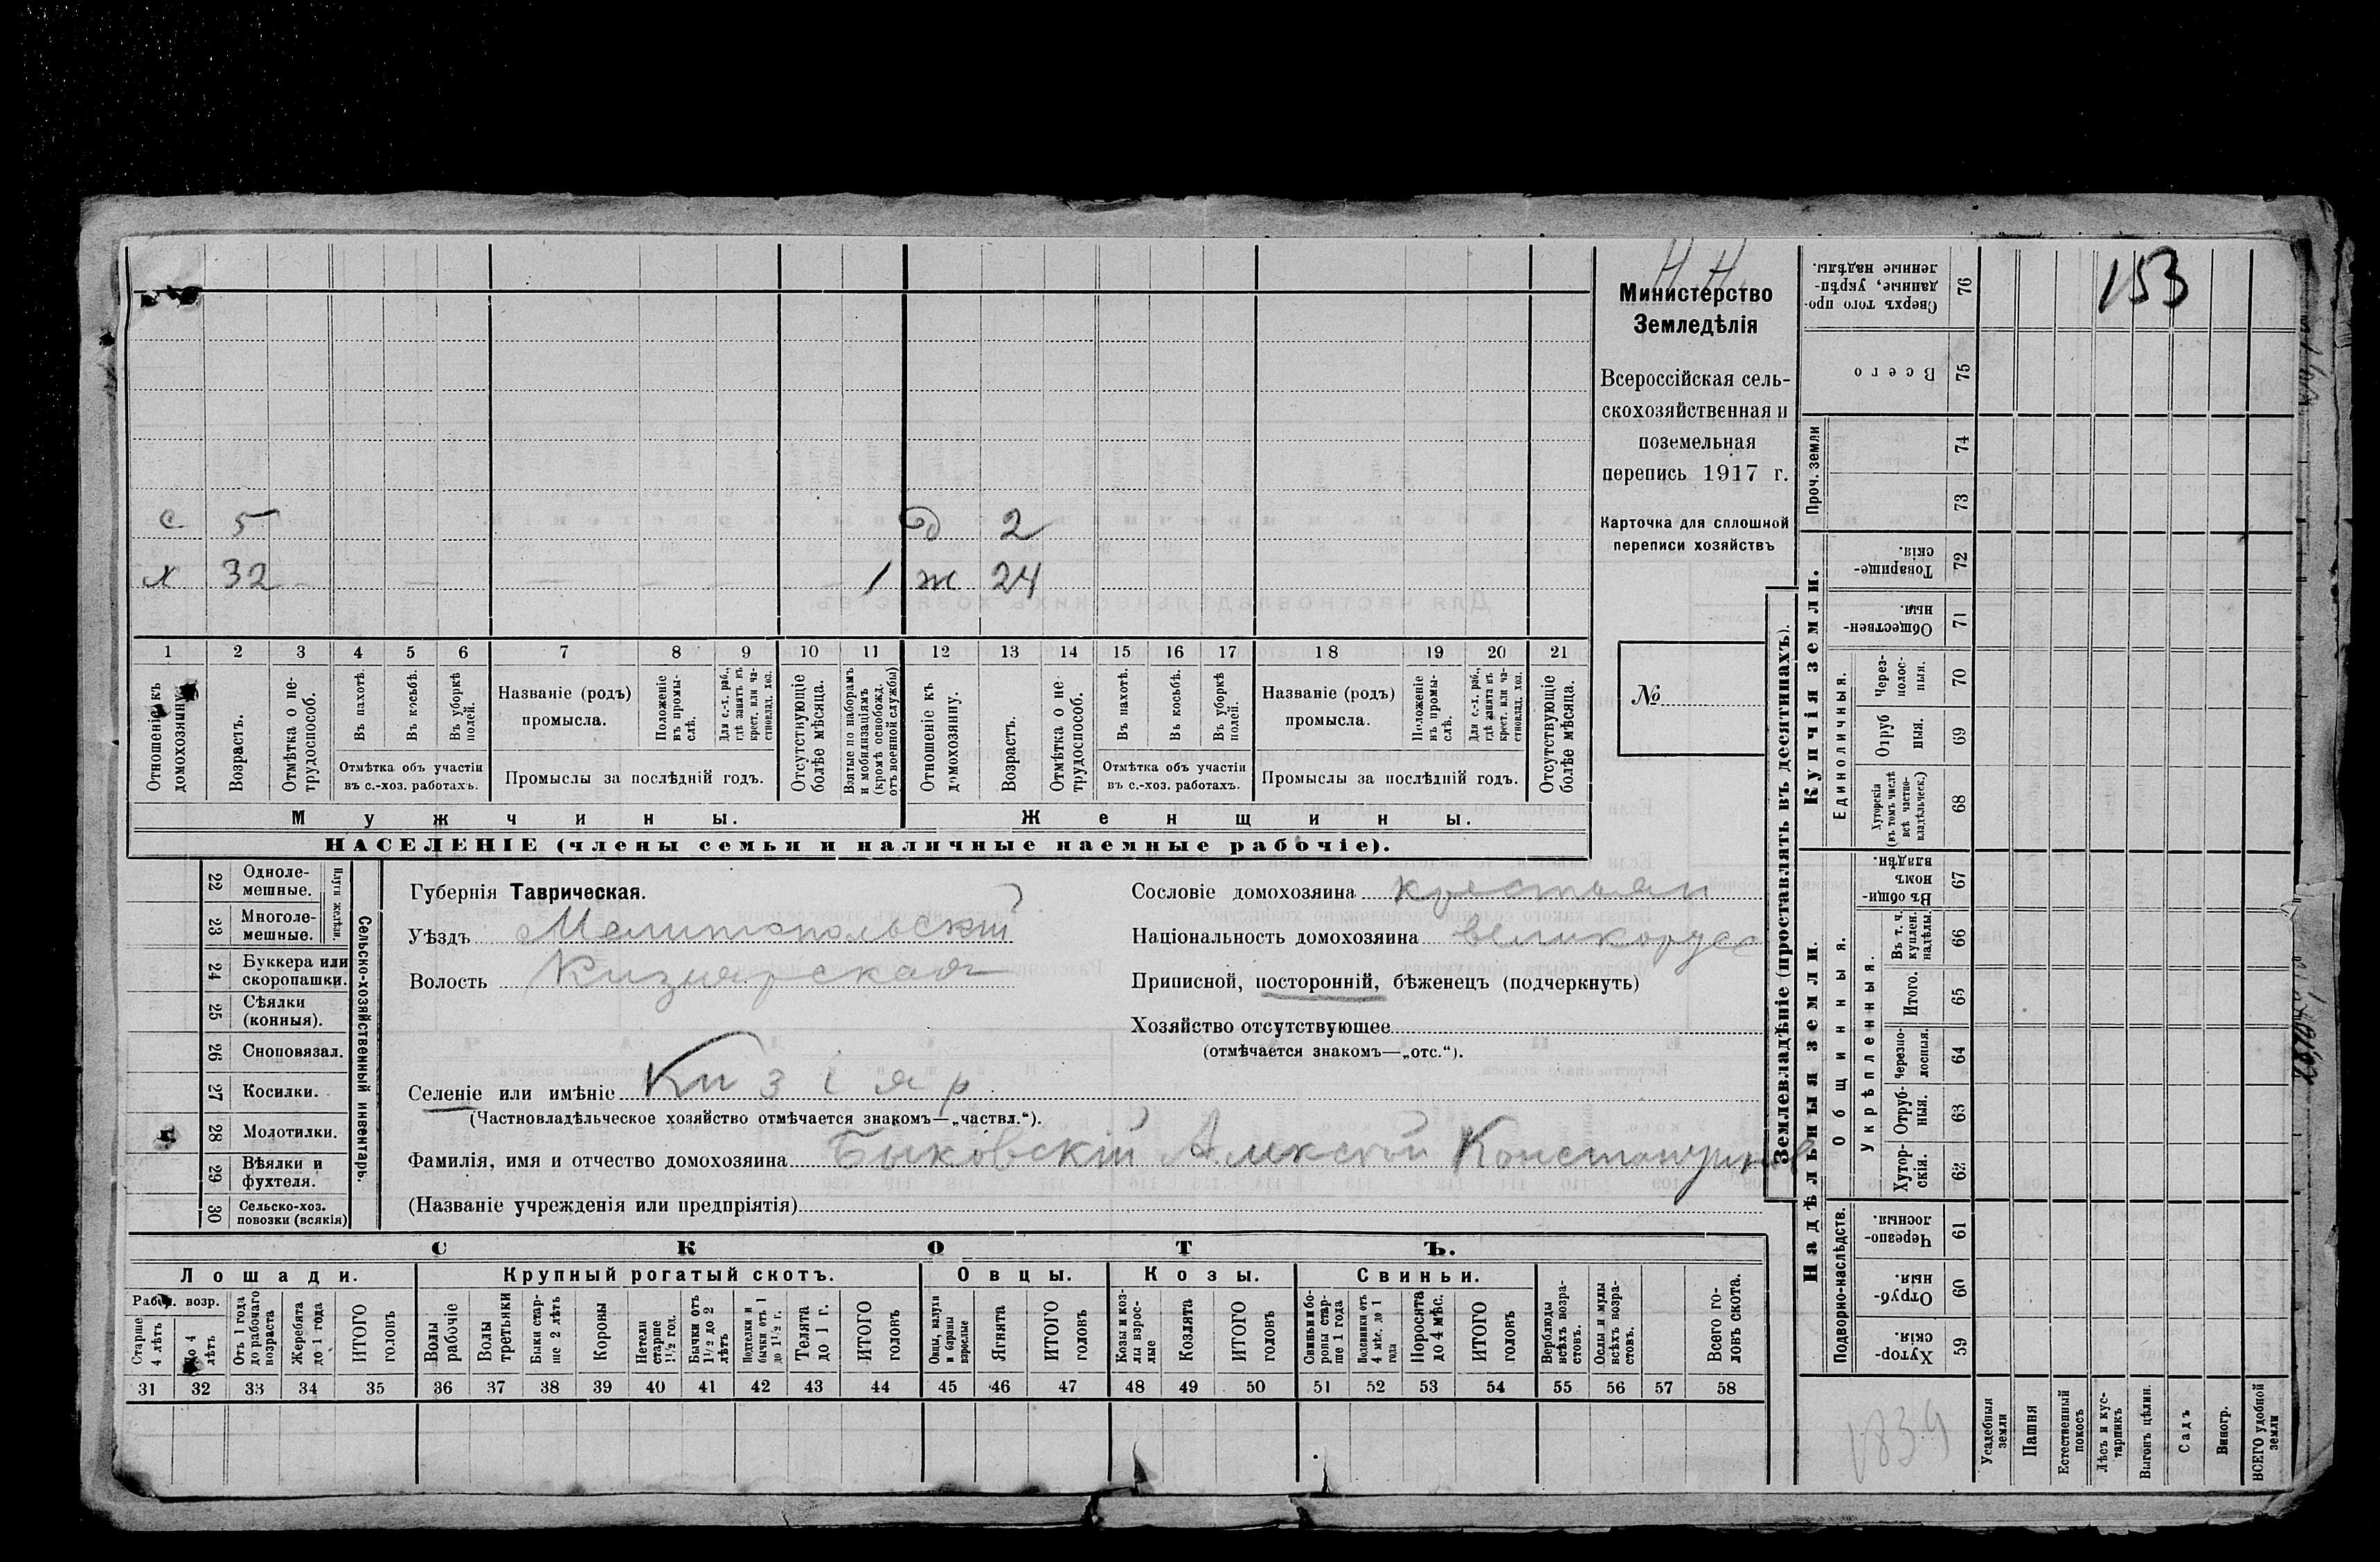 Н.Н.
Министерство
Земледѣлія
Всероссійская сель-
скохозяйственная и
поземельная
перепись 1917 г.
Карточка для сплошной
переписи хозяйствъ
№
153
с 5 д 2
х 32 1 ж 24
1 2 3 4 5 6 7 8 9 10 11 12 13 14 15 16 17 18 19 20 21
Отношеніе къ домохозяину.
Возрастъ.
Отмѣтка о не-трудоспособ.
Въ пахотѣ.
Въ косьбѣ.
Въ уборкѣ полей.
Отмѣтка объ участіи
въ с.-хоз. работахъ.
Названіе (родъ)
промысла.
Положеніе въ промы-слѣ.
Для с.-х. раб., гдѣ занятъ въ крест. или ча-стновлад. хоз.
Промыслы за послѣдній годъ.
Отсутствующіе болѣе мѣсяца.
Взятые по наборамъ и мобилизаціямъ (кромѣ освобожд. отъ военной службы)
Отношеніе къ домохозяину.
Возрастъ.
Отмѣтка о не трудоспособ.
Въ пахотѣ.
Въ косьбѣ.
Въ уборкѣ полей.
Отмѣтка объ участіи
въ с.-хоз. работахъ.
Названіе (родъ)
промысла.
Положеніе въ промы-слѣ.
Для с.-х. раб., гдѣ занята въ крест. или ча-стновлад. хоз.
Промыслы за послѣдній годъ.
Отсутствующіе болѣе мѣсяца.
Мужчины. Женщины.
НАСЕЛЕНІЕ (члены семьи и наличные наемные рабочіе).
22 Одноле-мешные.
23 Многоле-мешные.
Плуги желѣзн.
24 Буккера или скоропашки.
25 Сѣялки (конныя).
26 Сноповязал.
27 Косилки.
28 Молотилки.
29 Вѣялки и фухтеля.
30 Сельско-хоз. повозки (всякія)
Сельско-хозяйственный инвентарь.
Губернія Таврическая.
Уѣздъ Мелитопольскій
Волость Кизиярская
Сословіе домохозяина крестьян
Національность домохозяина великорусс
Приписной, посторонній, бѣженецъ (подчеркнуть)
Хозяйство отсутствующее
(отмѣчается знакомъ—„отс.“).
Селеніе или имѣніе Кизіяр
(Частновладѣльческое хозяйство отмѣчается знакомъ—„частвл.“).
Фамилія, имя и отчество домохозяина Быковскій Алексѣй Константинов
(Названіе учрежденія или предпріятія)
СКОТЪ.
Лошади. Крупный рогатый скотъ. Овцы. Козы. Свиньи.
Рабоч. возр.
Старше 4 лѣтъ
До 4 лѣтъ
Отъ 1 года до рабочаго возраста
Жеребята до 1 года
ИТОГО головъ
Волы рабочіе
Волы третьяки
Быки стар-ше 2 лѣтъ
Коровы
Нетели старше 1½ год.
Бычки отъ 1½ до 2 лѣтъ
Подтелки и бычки отъ 1 до 1½ г.
Телята до 1 г.
ИТОГО головъ
Овцы, валухи и бараны взрослые
Ягнята
ИТОГО головъ
Козы и коз-лы взрос-лые
Козлята
ИТОГО головъ
Свиньи и бо-ровы стар-ше 1 года
Подсвинки отъ 4 мѣс. до 1 года
Поросята до 4 мѣс.
ИТОГО головъ
Верблюды всѣхъ возра-стовъ.
Ослы и мулы всѣхъ возра-стовъ.
Всего го-ловъ скота.
31 32 33 34 35 36 37 38 39 40 41 42 43 44 45 46 47 48 49 50 51 52 53 54 55 56 57 58
Землевладѣніе (проставлять въ десятинахъ).
Надѣльныя земли.
Купчія земли.
Проч. земли
Подворно-наслѣдств.
Общинныя.
Укрѣпленныя.
Единоличныя.
Сверхъ того про-данные, укрѣп-ленные надѣлы. 76
Всего 75
74
73
Товарище-скія. 72
Обществен-ныя. 71
Через-полос-ныя. 70
Отруб ныя. 69
Хуторскія (въ томъ числѣ всѣ частно-владѣльческ.) 68
Въ общи-номъ владѣн. 67
Въ т. ч. куплен. надѣлы. 66
Итого. 65
Черезпо-лосныя. 64
Отруб-ныя. 63
Хутор-скія. 62
Черезпо-лосныя. 61
Отруб-ныя. 60
Хутор-скія. 59
1839
Усадебныя земли
Пашня
Естественный покосъ
Лѣсъ и кус-тарникъ
Выгонъ цѣлин.
Садъ
Виногр.
ВСЕГО удобной земли